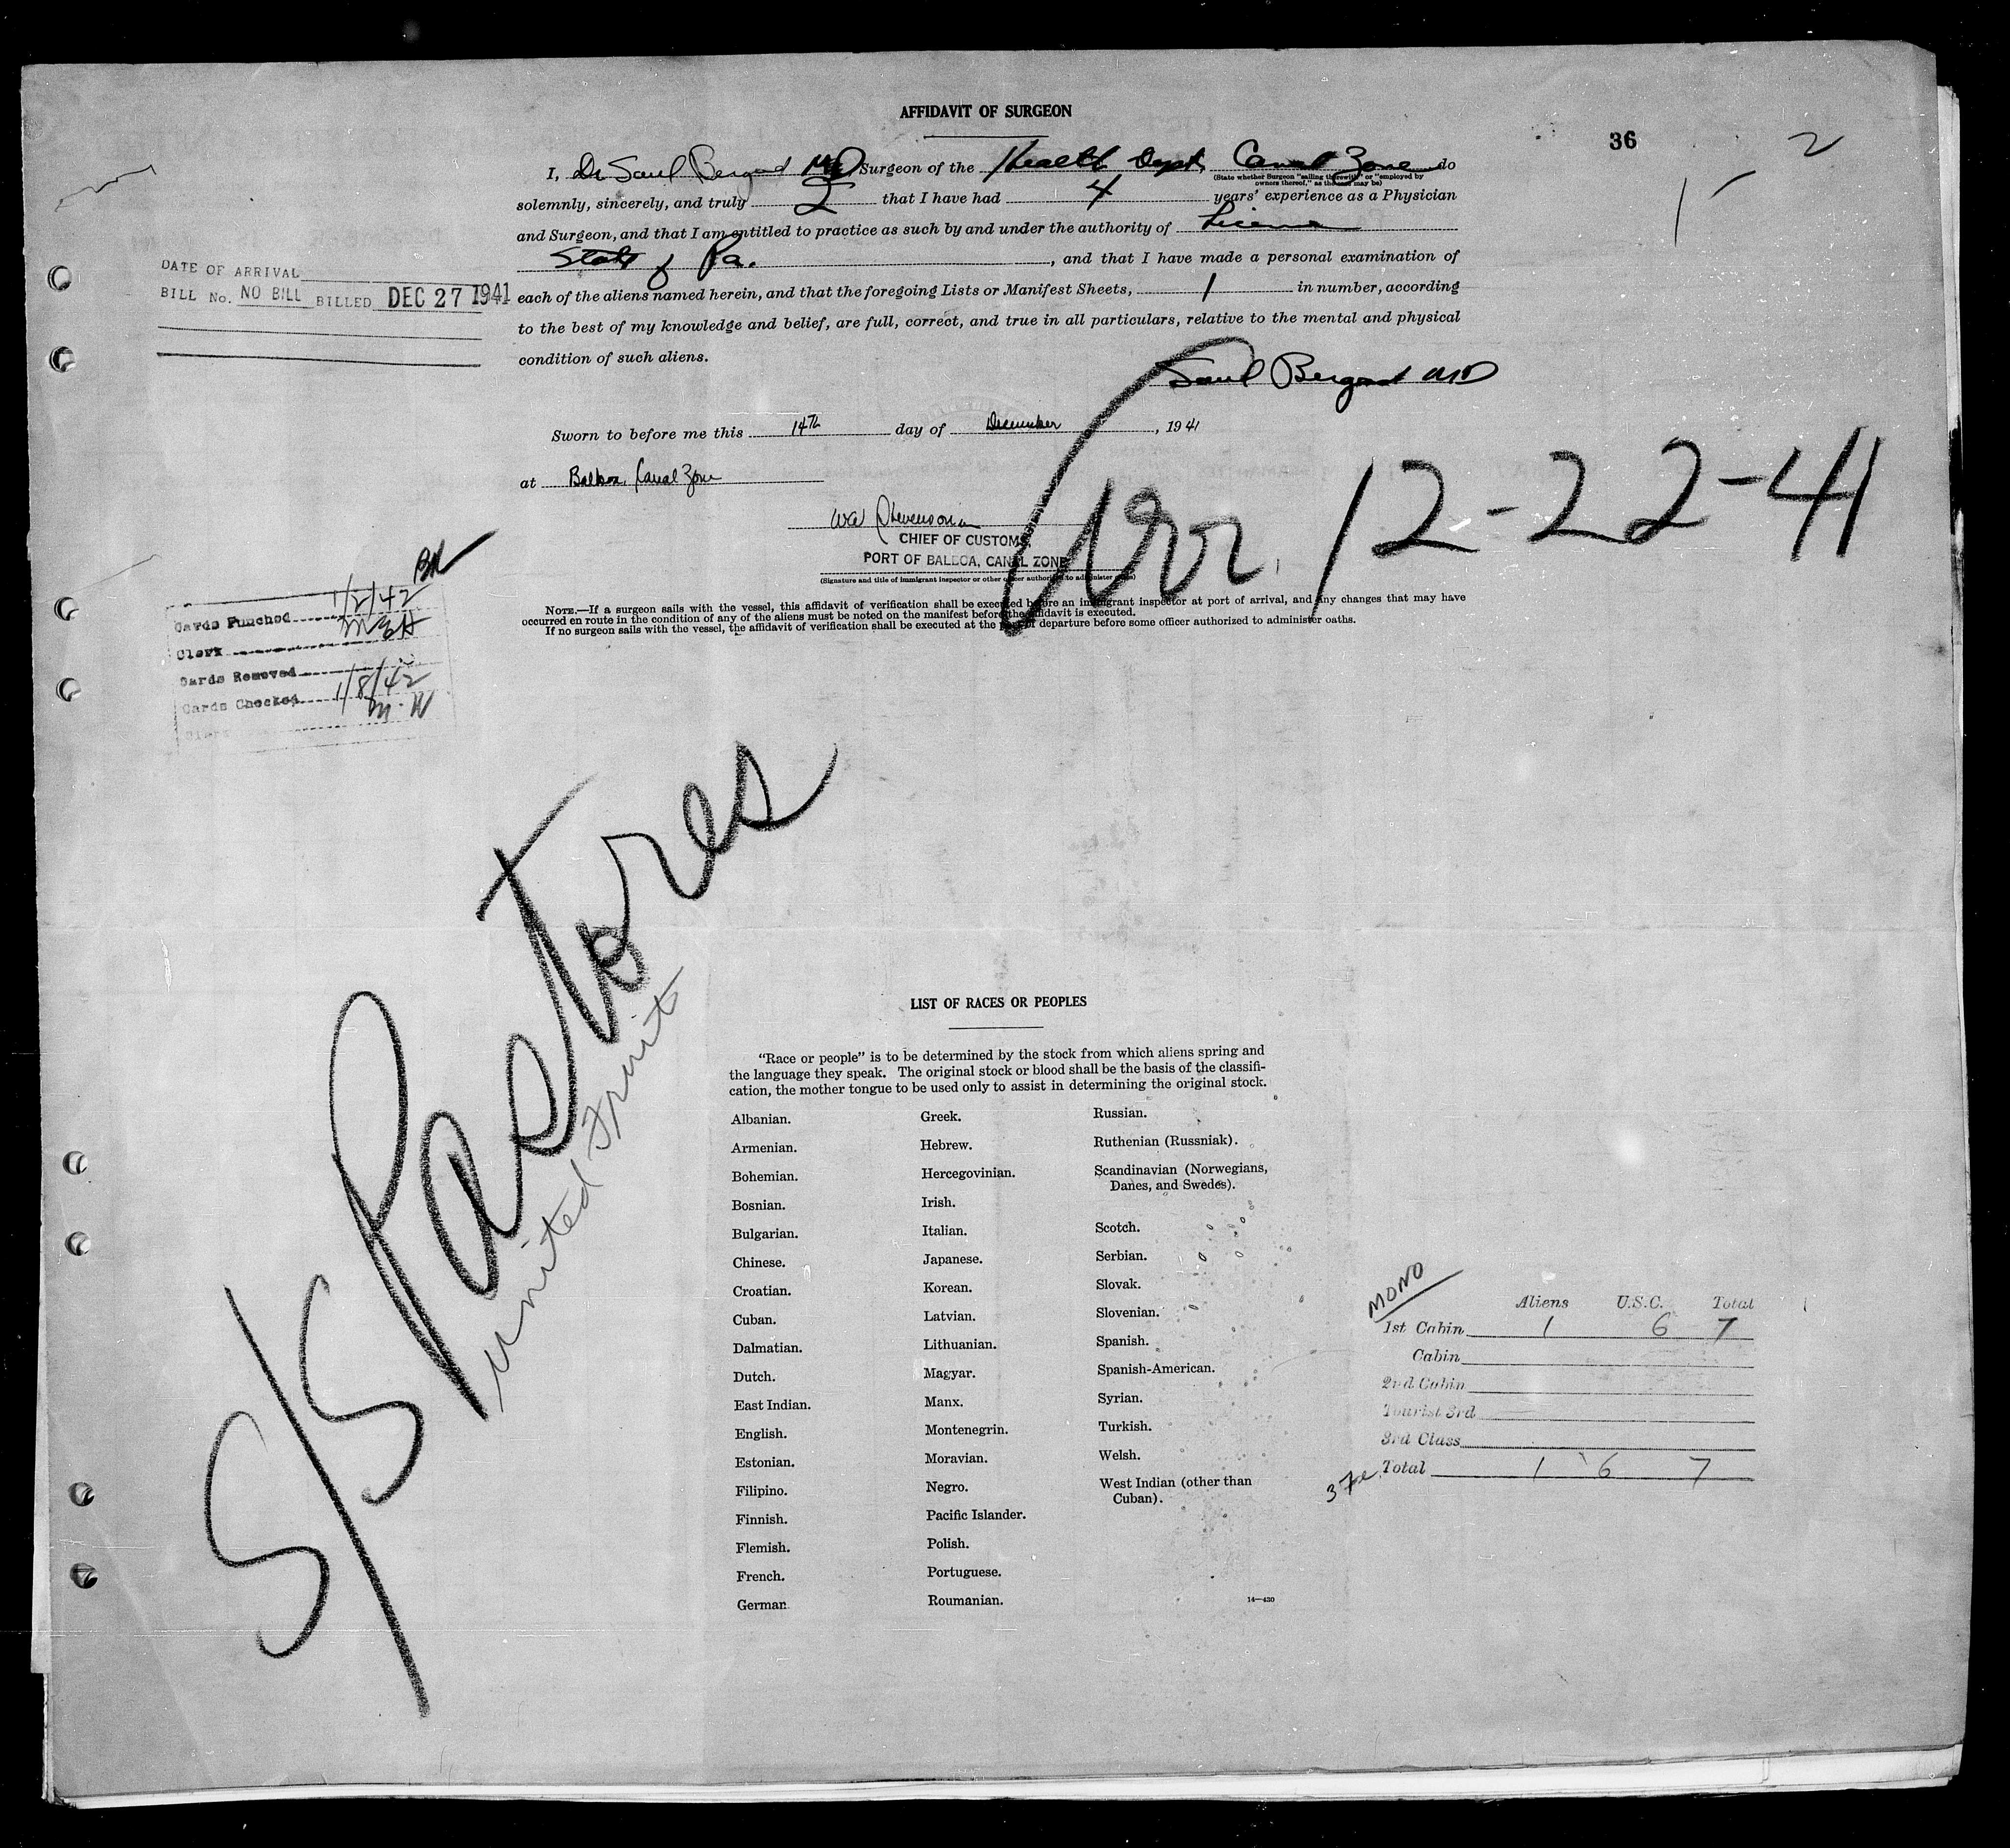 AFFIDAVIT OF SURGEON
36
2
I, Dr Saul Bergad MD Surgeon of the Health Dept. Canal Zone do
(State whether Surgeon "sailing therewith" or "employed by
owners thereof," as the case may be)
solemnly, sincerely, and truly 2 that I have had 4 years' experience as a Physician
and Surgeon, and that I am entitled to practice as such by and under the authority of License
State of Pa. , and that I have made a personal examination of
DATE OF ARRIVAL
BILL No. NO BILL BILLED DEC 27 1941
each of the aliens named herein, and that the foregoing Lists or Manifest Sheets, 1 in number, according
to the best of my knowledge and belief, are full, correct, and true in all particulars, relative to the mental and physical
condition of such aliens.
Saul Bergad MD
Sworn to before me this 14th day of December, 1941
at Balboa, Canal Zone
Arr. 12-22-41
WW Stevenson
CHIEF OF CUSTOMS,
PORT OF BALBOA, CANAL ZONE
(Signature and title of immigrant inspector or other officer authorized to administer oaths)
NOTE.—If a surgeon sails with the vessel, this affidavit of verification shall be executed before an immigrant inspector at port of arrival, and any changes that may have
occurred en route in the condition of any of the aliens must be noted on the manifest before the affidavit is executed.
If no surgeon sails with the vessel, the affidavit of verification shall be executed at the port of departure before some officer authorized to administer oaths.
Cards Punched 1/2/42
Clerk
Cards Removed
Cards Checked 1/8/42
Clerk M.W
S/S Pastores
United Fruit
LIST OF RACES OR PEOPLES
"Race or people" is to be determined by the stock from which aliens spring and
the language they speak. The original stock or blood shall be the basis of the classifi-
cation, the mother tongue to be used only to assist in determining the original stock.
Albanian.
Armenian.
Bohemian.
Bosnian.
Bulgarian.
Chinese.
Croatian.
Cuban.
Dalmatian.
Dutch.
East Indian.
English.
Estonian.
Filipino.
Finnish.
Flemish.
French.
German.
Greek.
Hebrew.
Hercegovinian.
Irish.
Italian.
Japanese.
Korean.
Latvian.
Lithuanian.
Magyar.
Manx.
Montenegrin.
Moravian.
Negro.
Pacific Islander.
Polish.
Portuguese.
Roumanian.
Russian.
Ruthenian (Russniak).
Scandinavian (Norwegians,
Danes, and Swedes).
Scotch.
Serbian.
Slovak.
Slovenian.
Spanish.
Spanish-American.
Syrian.
Turkish.
Welsh.
West Indian (other than
Cuban).
14—430
MONO
Aliens U.S.C. Total
1st Cabin 1 6 7
Cabin
2nd Cabin
Tourist 3rd
3rd Class
Total 1 6 7